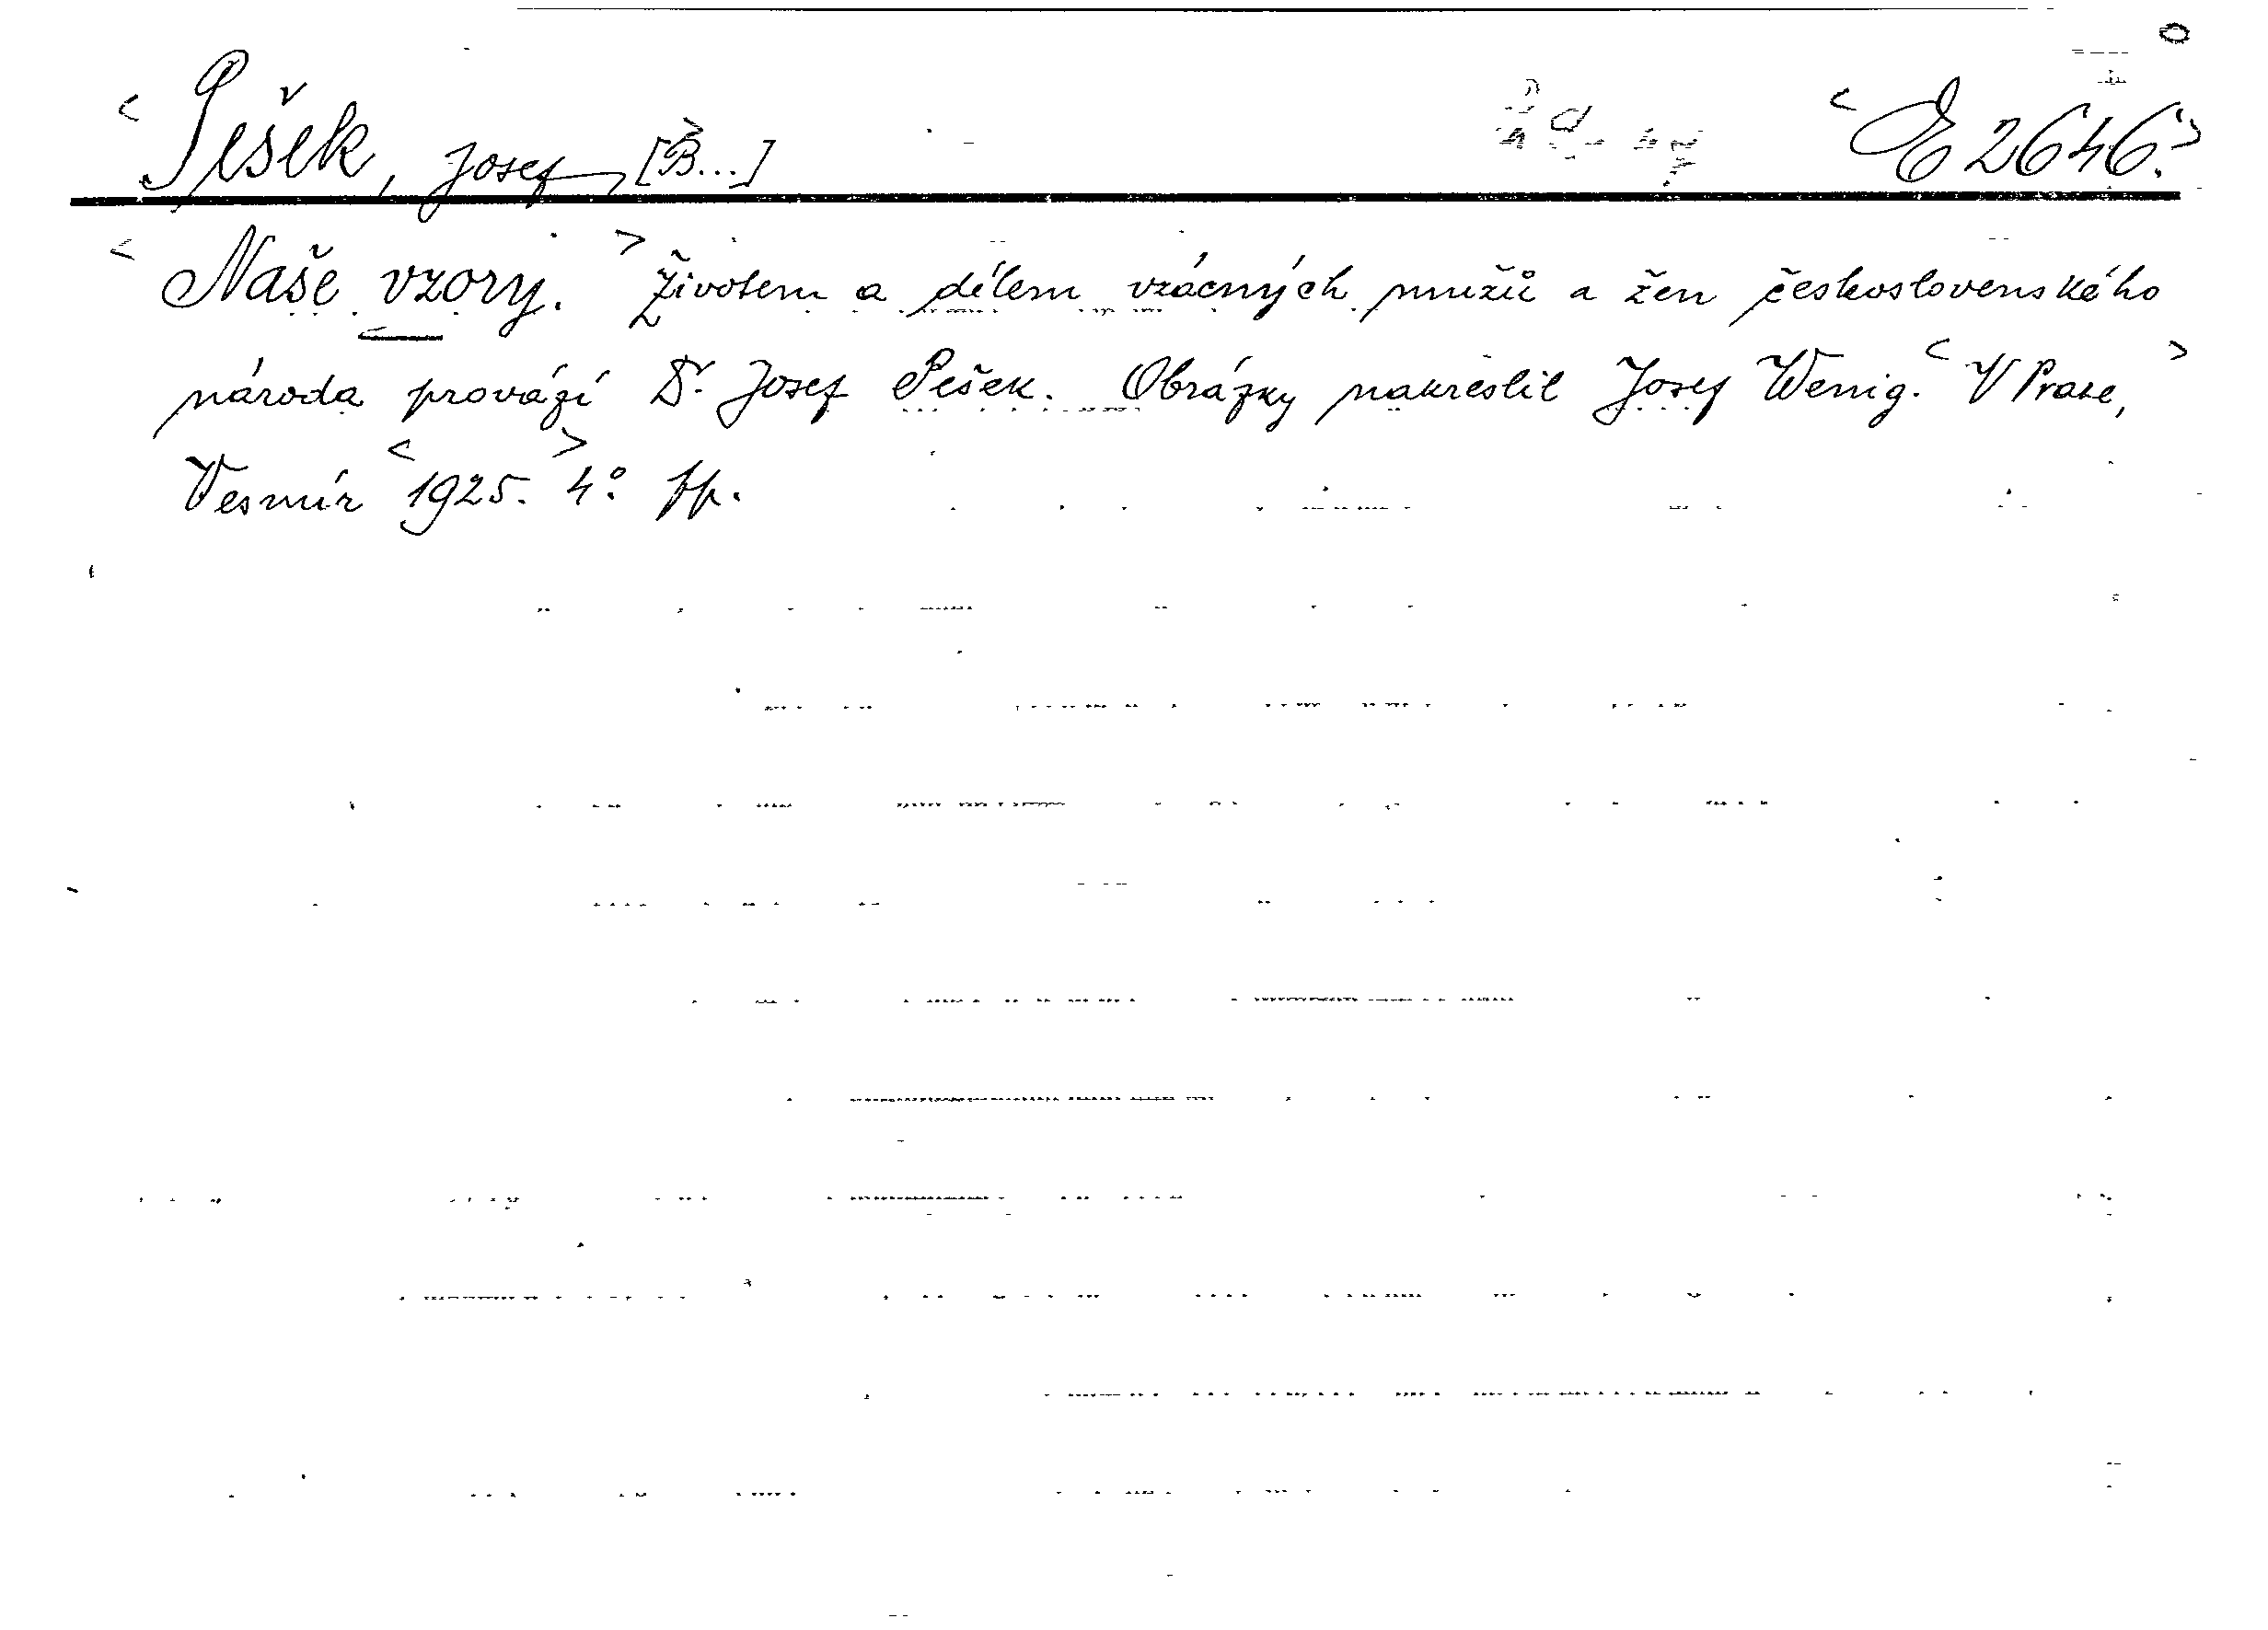 <Pešek, Josef, [B...]> <E 2646.>
<Naše vzory.> Životem a dílem vzácných mužů a žen československého
národa provází Dr. Josef Pešek. Obrázky nakreslil Josef Wenig. <V Praze,>
Vesmír <1925.> 4°.